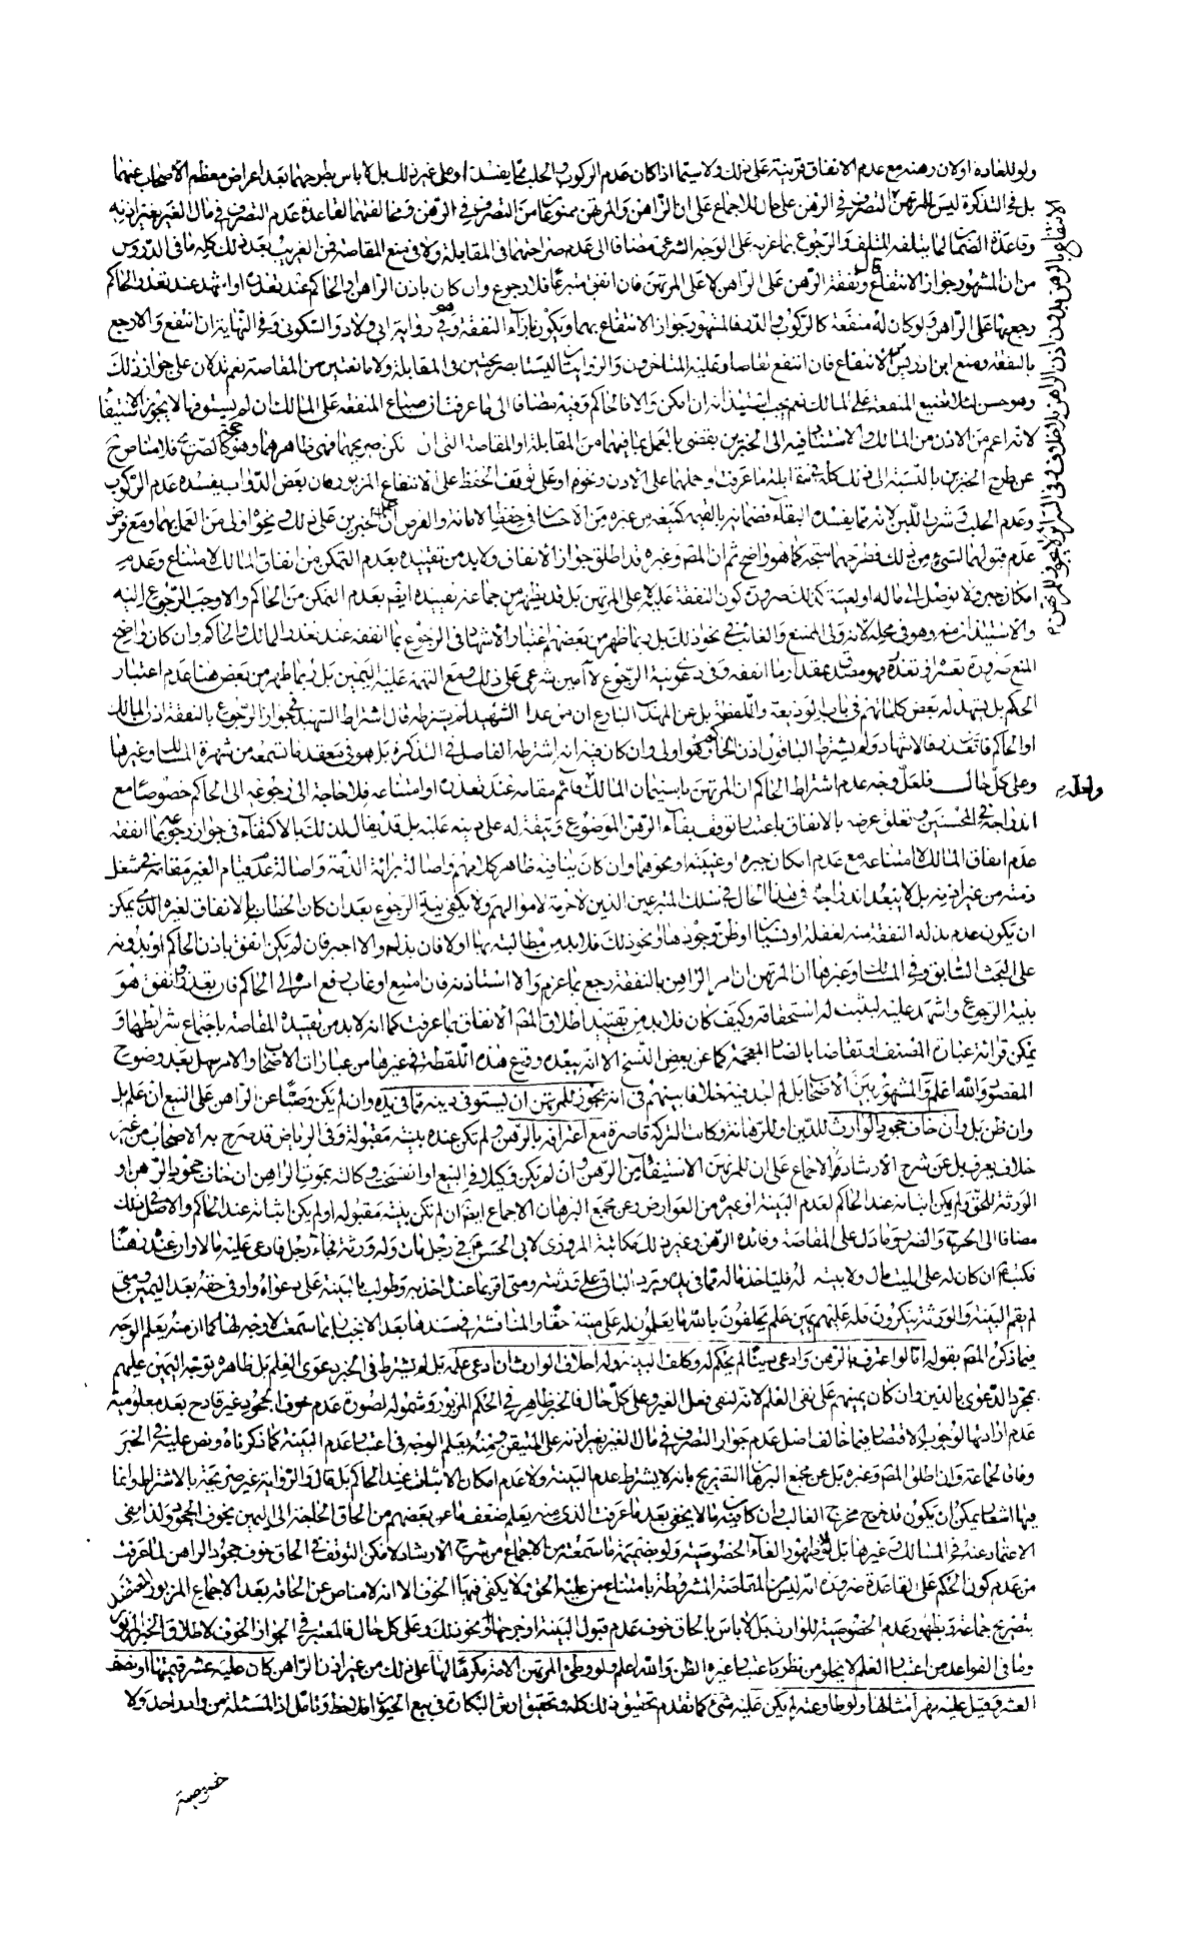 ولو للعادة او لان رهنه مع عدم الانفاق قرينة على ذلك ولا سيما اذا كان عدم الركوب والحلب مما يفسده او على غير ذلك بل لا باس بطرحهما بعد اعراض معظم الاصحاب عنهما
بل في التذكرة ليس للمرتهن التصرف في الرهن على حال للاجماع على ان الراهن والمرتهن ممنوعان من التصرف في الرهن ومخالفتهما لقاعدة عدم التصرف في مال الغير بغير اذنه
وقاعدة الضمان لما يتلفه المتلف والرجوع بما غرمه على الوجه الشرعي مضافا الى عدم صراحتهما في المقابلة ولا في منع المقاصة فمن الغريب بعد ذلك كله ما في الدروس
من ان المشهور جواز الانتفاع قال ونفقة الرهن على الراهن لا على المرتهن فان انفق متبرعا فلا رجوع وان كان باذن الراهن او الحاكم عند تعذره او اشهد عند تعذر الحاكم
رجع بها على الراهن ولو كان له منفعة كالركوب والدر فالمشهور جواز الانتفاع بهما ويكون بازاء النفقة وهو في رواية ابي ولاد والسكوني وفي النهاية ان انتفع والا رجع
بالنفقة ومنع ابن ادريس من الانتفاع فان انتفع تقاصا وعليه المتاخرون والروايتان ليستا بصريحتين في المقابلة ولا مانعتين من المقاصة نعم تدلان على جواز ذلك
وهو حسن لئلا تضيع المنفعة على المالك نعم يجب استيذانه ان امكن والا فالحاكم وفيه مضافا الى ما عرفت ان ضياع المنفعة على المالك ان لم يستوفها لا يجوز الاستيفاء
لانه اعم من الاذن من المالك والاستناد فيه الى الخبرين يقتضي بالعمل بما فيهما من المقابلة او المقاصة التي ان لم تكن صريحهما فهي ظاهرهما وهو حجة كالصريح فلا مناص ح
عن طرح الخبرين بالنسبة الى ذلك كله في مقابلة ما عرفت وحملهما على الاذن ونحوه او على توقف الحفظ على الانتفاع المزبور فان بعض الدواب يفسده عدم الركوب
وعدم الحلب وشرب اللبن لانه مما يفسده البقاء فضمانه بالقيمة كبيعه من غيره من الاحسان في حفظ الامانة والغرض ان حمل الخبرين على ذلك ونحوه اولى من العمل بهما ومع فرض
عدم قبولهما لشيء من ذلك فطرحهما متجه كما هو واضح ثم ان المصر وغيره قد اطلق جواز الانفاق ولا بد من تقييده بعدم التمكن من انفاق المالك لامتناع وعدم
امكان جبره ولا توصل الى ماله او لغيبة كذلك ضرورة كون النفقة عليه لا على المرتهن بل قد يظهر من جماعة تقييده ايضا بعدم التمكن من الحاكم والا وجب الرجوع اليه
والاستيذان منه وهو في محله لانه ولي الممتنع والغائب في نحو ذلك بل ربما ظهر من بعضهم اعتبار الاشهاد في الرجوع بما انفقه عند تعذر المالك والحاكم وان كان واضح
المنع ضرورة تعسره او تعذره فهو مصدق مقدار ما انفقه وفي دعوى نية الرجوع لا امين شرعي على ذلك ومع التهمة عليه اليمين بل ربما ظهر من بعض هنا عدم اعتبار
الحكم بل يشهد له بعض كلماتهم في باب الوديعة واللقطة بل عن المهذب البارع ان من عدا الشهيد لم يشترطه قال اشتراط الشهيد في جواز الرجوع بالنفقة اذن المالك
او الحاكم فان تعذر فالاشهاد ولم يشترط الباقون اذن الحاكم وهو اولى وان كان فيه انه اشترطه الفاضل في التذكرة بل هو في معقد ما تسمعه من شهرة المسالك وغيرها
وعلى كل حال فلعل وجه عدم اشتراط الحاكم ان المرتهن باستيمان المالك قائم مقامه عند تعذره او امتناعه فلا حاجة الى رجوعه الى الحاكم خصوصا مع
اندراجه في المحسنين وتعلق غرضه بالانفاق باعتبار توقف بقاء الرهن الموضوع وثيقة له على دينه عليه بل قد يقال لذلك بالاكتفاء في جواز رجوعه بما انفقه
عدم انفاق المالك لامتناعه مع عدم امكان جبره او غيبته او نحوهما وان كان ينافيه ظاهر كلامهم واصالة برائة الذمة واصالة عدم قيام الغير مقامه في شغل
ذمته من غير اذنه بل لا يبعد اندراجه في هذا الحال في سلك المتبرعين الذين لا حرمة لاموالهم ولا يكفي نية الرجوع بعد ان كان الخطاب بالانفاق لغيره الذي يمكن
ان يكون عدم بذله النفقة منه لغفلة او نسيان او ظن وجودها او نحو ذلك فلا بد من مطالبته بها اولا فان بذله والا اجبر فان لم يكن انفق باذن الحاكم او بدونه
على البحث السابق وفي المسالك وغيرها ان المرتهن ان امره الراهن بالنفقة رجع بما غرم والا استاذنه فان امتنع او غاب رفع امره الى الحاكم فان تعذر وانفق هو
بنية الرجوع واشهد عليه ليثبت له استحقاقه وكيف كان فلا بد من تقييد اطلاق المصر الانفاق بما عرفت كما انه لا بد من تقييده المقاصة باجتماع شرائطها و
يمكن قرائة عبارة المصنف او تقاضا بالضاد المعجمة كما عن بعض النسخ الا انه يبعده وقوع هذه اللفظة في غيرها من عبارات الاصحاب والامر سهل بعد وضوح
المقصود والله اعلم والمشهور بين الاصحاب بل لم اجد فيه خلافا بينهم في انه يجوز للمرتهن ان يستوفي دينه مما في يده وان لم يكن وصيا عن الراهن على البيع ان علم بل
وان ظن بل وان خاف جحود الوارث للدين او للرهانة وكانت التركة قاصرة مع اعترافه بالرهن ولم تكن عنده بينة مقبولة وفي الرياض قد صرح به الاصحاب من غير
خلاف يعرف بل عن شرح الارشاد الاجماع على ان للمرتهن الاستيفاء من الرهن وان لم يكن وكيلا في البيع او انفسخت وكالته بموت الراهن ان خاف جحود الراهن او
الورثة للحق ولم يمكن اثباته عند الحاكم لعدم البينة او غيره من العوارض وعن مجمع البرهان الاجماع ايضا ان لم تكن بينة مقبولة او لم يمكن اثباته عند الحاكم والاصل في ذلك
مضافا الى الحرج والضرر وما دل على المقاصة وفائدة الرهن وغير ذلك مكاتبة المروزي لابي الحسن ع في رجل مات وله ورثة فجاء رجل فادعى عليه مالا وان عنده رهنا
فكتب ع ان كان له على الميت مال ولا بينة له فلياخذ ماله مما في يده وليرد الباقي على ورثته ومتى اقر بما عنده اخذ به وطولب بالبينة على دعواه واوفى حقه بعد اليمين ومتى
لم يقم البينة والورثة ينكرون فله عليهم يمين علم يحلفون بالله ما يعلمون له على ميته حقا والمناقشة في سندها بعد الانجبار بما سمعت لا وجه لها كما ان منه يعلم الوجه
فيما ذكره المصر بقوله اما لو اعترف بالرهن وادعى دينا لم يحكم له وكلف البينة وله احلاف الوارث ان ادعى علمه بل لم يشترط في الخبر دعوى العلم بل ظاهره توجه اليمين عليهم
بمجرد الدعوى بالدين وان كان يمينهم على نفي العلم لانه لنفي فعل الغير وعلى كل حال فالخبر ظاهر في الحكم المزبور وشموله لصورة عدم خوف الجحود غير قادح بعد معلومية
عدم ارادتها لوجوب الاقتصار فيما خالف اصل عدم جواز التصرف في مال الغير بغير اذنه على المتيقن ومنه يعلم الوجه في اعتبار عدم البينة كما ذكرناه ونص عليه في الخبر
وفاقا لجماعة وان اطلق المصر وغيره بل عن مجمع البرهان التصريح بانه لا يشترط عدم البينة ولا عدم امكان الاثبات عند الحاكم بل قال والرواية غير صريحة بالاشتراط وانما
فيها اشعار يمكن ان يكون قد خرج مخرج الغالب وان كان فيه ما لا يخفى بعد ما عرفت الذي منه يعلم ضعف ما عن بعضهم من الحاق الحاجة الى اليمين بخوف الجحود ولذا نفى
الاعتماد عنه في المسالك وغيرها بل لولا ظهور الغاء الخصوصية ولو بضميمة ما سمعته من الاجماع من شرح الارشاد لامكن التوقف في الحاق خوف جحود الراهن لما عرفت
من عدم كون الحكم على القاعدة ضرورة انه ليس المقاصة المشروطة بامتناع من عليه الحق ولا يكفي فيها الخوف الا انه لا مناص عن الحاقه بعد الاجماع المزبور المعتضد
بتصريح جماعة وبظهور عدم الخصوصية للوارث بل لا باس بالحاق خوف عدم قبول البينة او جرحها او نحو ذلك وعلى كل حال فالمعتبر في الجواز الخوف لاطلاق الخبر المزبور
وما في القواعد من اعتبار العلم لا يخلو من نظر كاعتبار غيره الظن والله اعلم ولو وطئ المرتهن الامة مكرها لها على ذلك من غير اذن الراهن كان عليه عشر قيمتها او نصف
العشر وقيل عليه مهر امثالها ولو طاوعته لم يكن عليه شيء كما تقدم تحقيق ذلك كله وتحقيق ارش البكارة في بيع الحيوان فلاحظ وتامل اذ المسئلة من واد واحد ولا
خصوصية
الانتفاع بالرهن بدون اذن الراهن بلا خلاف وفي السرائر لا يجوز للمرتهن
ولعله